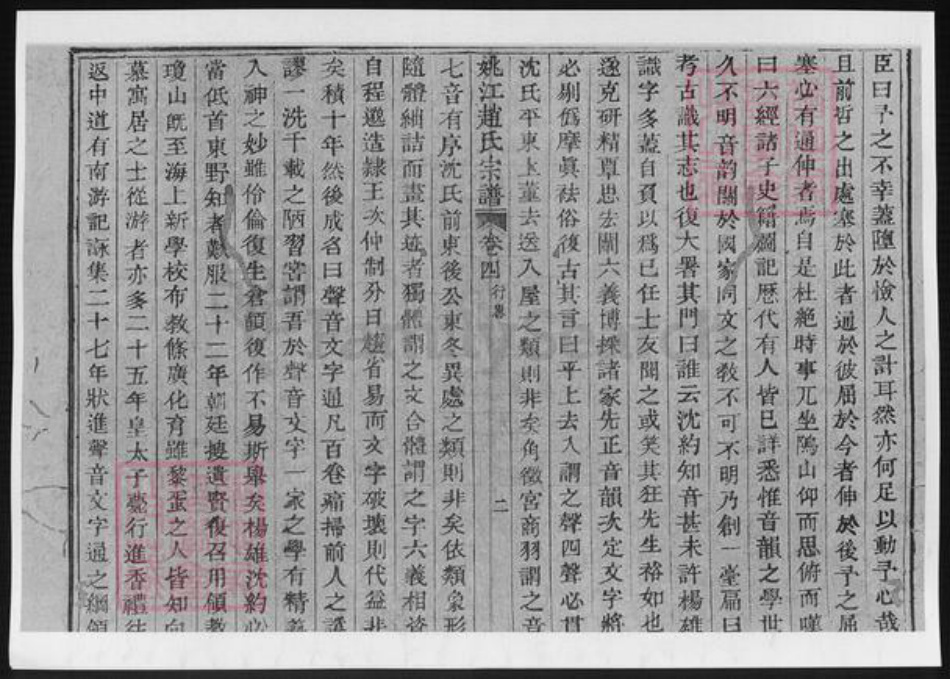 臣曰予之不幸蓋墮於憸人之計耳然亦何足以動予心哉
且前哲之出處塞於此者通於彼屈於今者伸於後予之屈
塞必有通伸者焉自是杜絕時事兀坐隝山仰而思俯而嘆
曰六經諸子史籍圖記歷代有人皆已詳悉惟音韻之學世
久不明音韵關於國家同文之教不可不明乃創一臺扁曰
考古識其志也復大署其門曰誰云沈約知音甚未許楊雄
識字多蓋自負以爲己任士友聞之或笑其狂先生裕如也
遂克研精覃思玄闡六義博採諸家先正音韻次定文字將
必剔僞摩眞袪俗復古其言曰平上去入謂之聲四聲必貫
沈氏平東上董去送入屋之類則非矣角徵宮商羽謂之音
姚江趙氏宗譜 卷四 行畧 二
七音有序沈氏前東後公東冬異處之類則非矣依類象形
隨體詘詰而畫其迹者獨體謂之文合體謂之字六義相資
自程邈造隸王次仲制分日趨省易而文字破壞則代益非
矣積十年然後成名曰聲音文字通凡百卷痛掃前人之謬
謬一洗千載之陋習嘗謂吾於聲音文字一家之學有精義
入神之妙雖伶倫復生倉頡復作不易斯舉矣楊雄沈約必
當低首東野知者歎服二十二年朝廷搜遺賢復召用領教
瓊山既至海上新學校布教條廣化育雖黎蛋之人皆知向
慕寓居之士從游者亦多二十五年皇太子薨行進香禮往
返中道有南游記詠集二十七年狀進聲音文字通之綱領